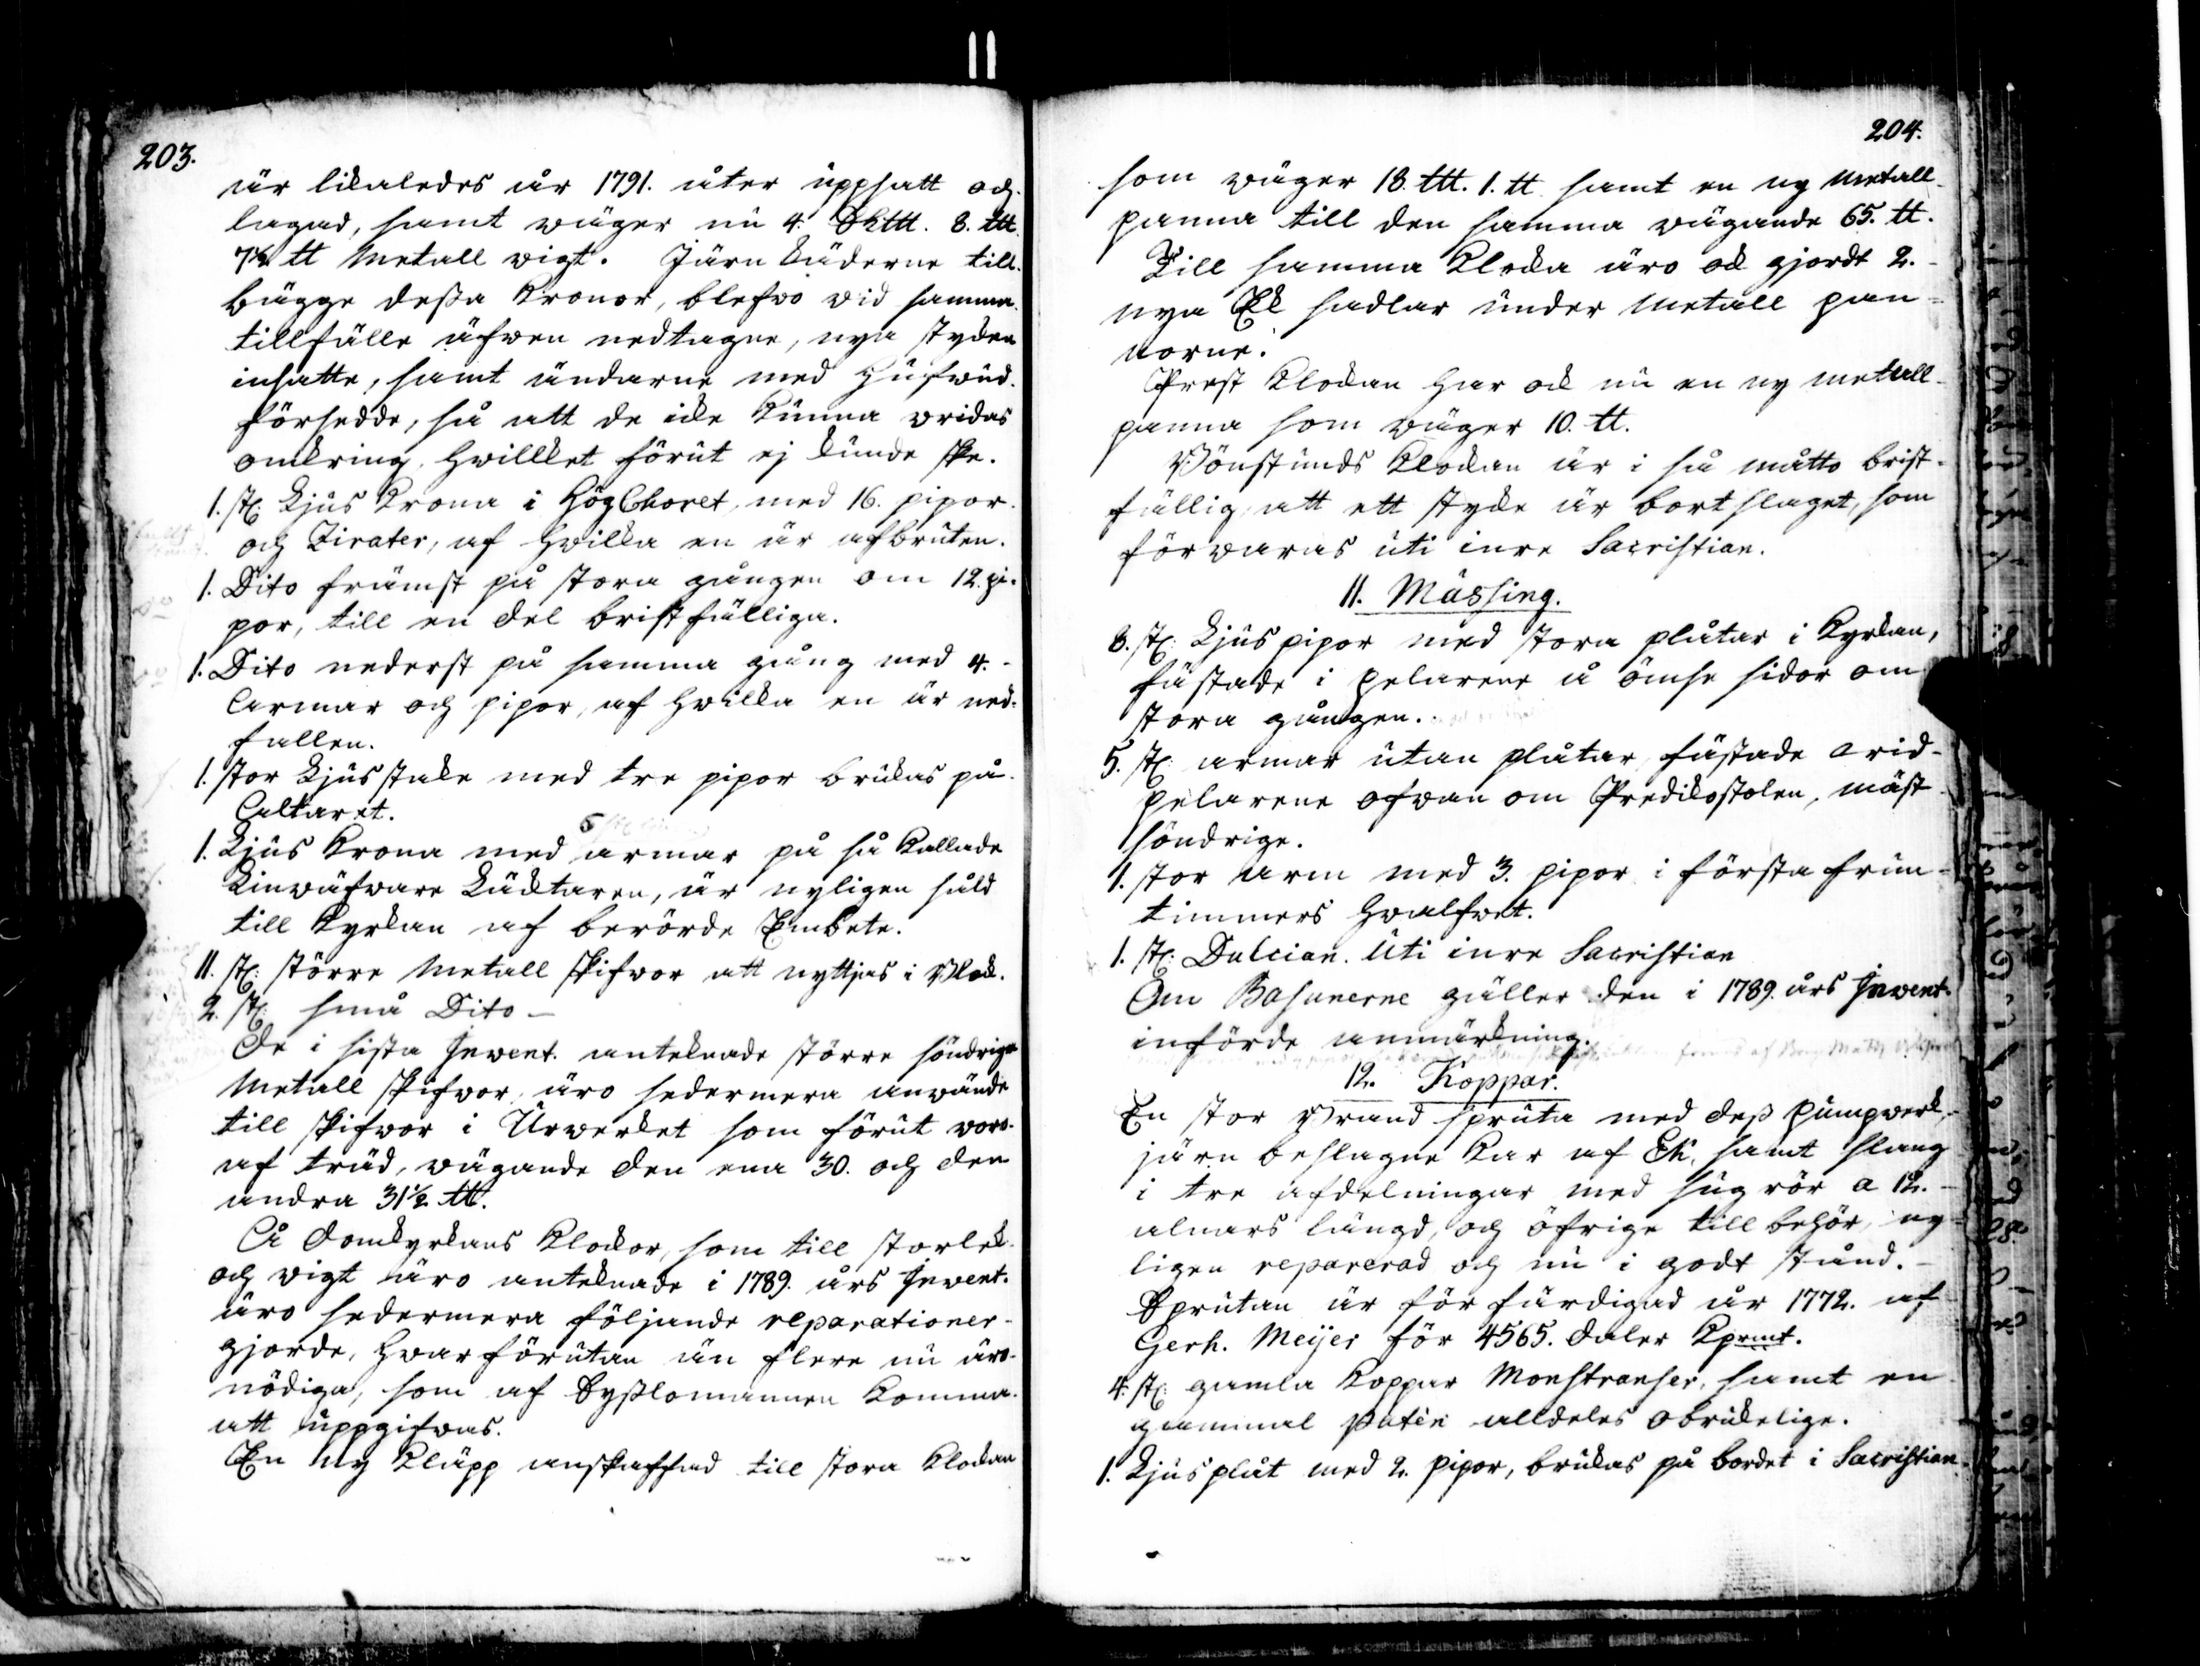 203.
är likaledes år 1791. åter uppsatt och
lagad, samt wäger nu 4. Sk℔. 8. L℔.
7½ ℔ Metall vigt. Järn Käderne till
bägge dessa Kronor, blefwo vid samma
tillfälle äfwen nedtagne, nya stycken
insatte, samt ändarne med hufwud
försedde, så att de icke kunna vridas
omkring, hvillket förut ej kunde ske.
1. st: Ljus Krona i Hög Choret, med 16. pipor
och Zirater, af hvilka en är afbruten.
1. Dito främst på stora gången om 12. pi-
por, till en del bristfälliga.
1. Dito nederst på samma gång med 4.
Armar och pipor, af hvilka en är ned-
fallen.
1. stor Ljusstake med tre pipor brukas på
Altaret.
1. Ljus Krona med 6 armar på så kallade
Linwäfware Läcktaren, är nyligen såld
till Kyrkan af berörde Embete.
11. st: större Metall skifvor att nyttjas i Block.
2. st: små Dito –
De i sista Invent. antecknade större söndrige
Metall skifvor, äro sedermera använde
till skifvor i Urverket som förut voro
af träd, wägande den ena 30. och den
andra 31½ ℔.
Å Domkyrkans Klockor, som till storlek
och vigt äro antecknade i 1789. års Invent.
äro sedermera följande reparationer
gjorde, hvarförutan än flere nu äro
nödiga, som af Sysslomannen komma
att uppgifvas.
En ny Kläpp anskaffad till stora Klockan
204.
som wäger 18. L℔. 1. ℔ samt en ny metall
panna till den samma wägande 65. ℔.
Till samma Klocka äro ock gjordt 2.
nya Ek sadlar under Metall pan-
norne.
Prest Klockan har ock nu en ny metall
panna som wäger 10. ℔.
Bönstunds Klockan är i så måtto brist-
fällig, att ett stycke är bortslaget, som
förvaras uti inre Sacristian.
11. Mässing.
8. st: Ljuspipor med stora plåtar i Kyrkan,
fästade i pelarene å ömse sidor om
stora gången.
5. st: armar utan plåtar, fästade vid
pelarene ofvan om Predikostolen, mäst
söndrige.
1. stor arm med 3. pipor i första frun-
timmers hvalfvet.
1. st: Dulcian. Uti inre Sacristian
Om Basunerne gäller den i 1789. års Invent.
införde anmärkning.
12. Koppar.
En stor Brand spruta med dess pumpverk,
järn beslagne Kar af Ek, samt slang
i tre afdelningar med sugrör a 12.
alnars längd, och öfrige tillbehör, ny-
ligen reparerad och nu i godt stånd.
Sprutan är förfärdigad år 1772. af
Gerh. Meijer för 4565. daler Kpmnt.
4. st: gamla Koppar Monstranser, samt en
gammal Patèn alldeles obrukelige.
1. Ljusplåt med 2. pipor, brukas på bordet i Sacristian.